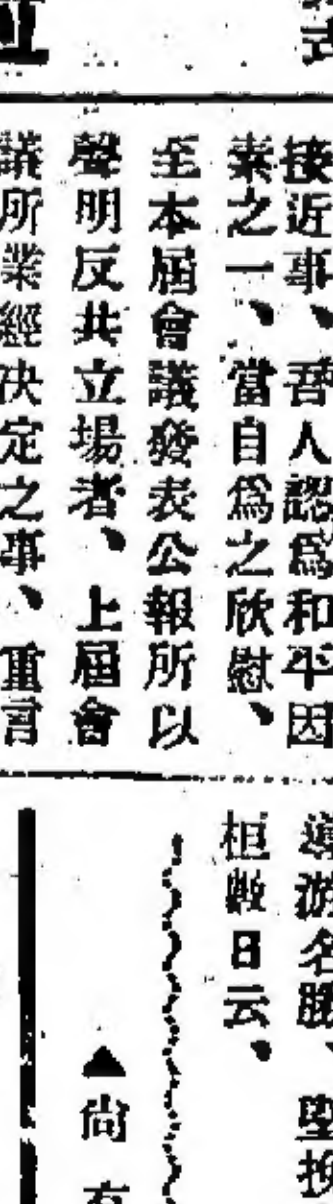 接近事、吾人認爲和平因
素之一、當自爲之欣慰、
至本屆會議發表公報所以
聲明反共立場者、上屆會
議所業經決定之事、重言
導游名勝、堅挽
柜數日云、
▲尚有